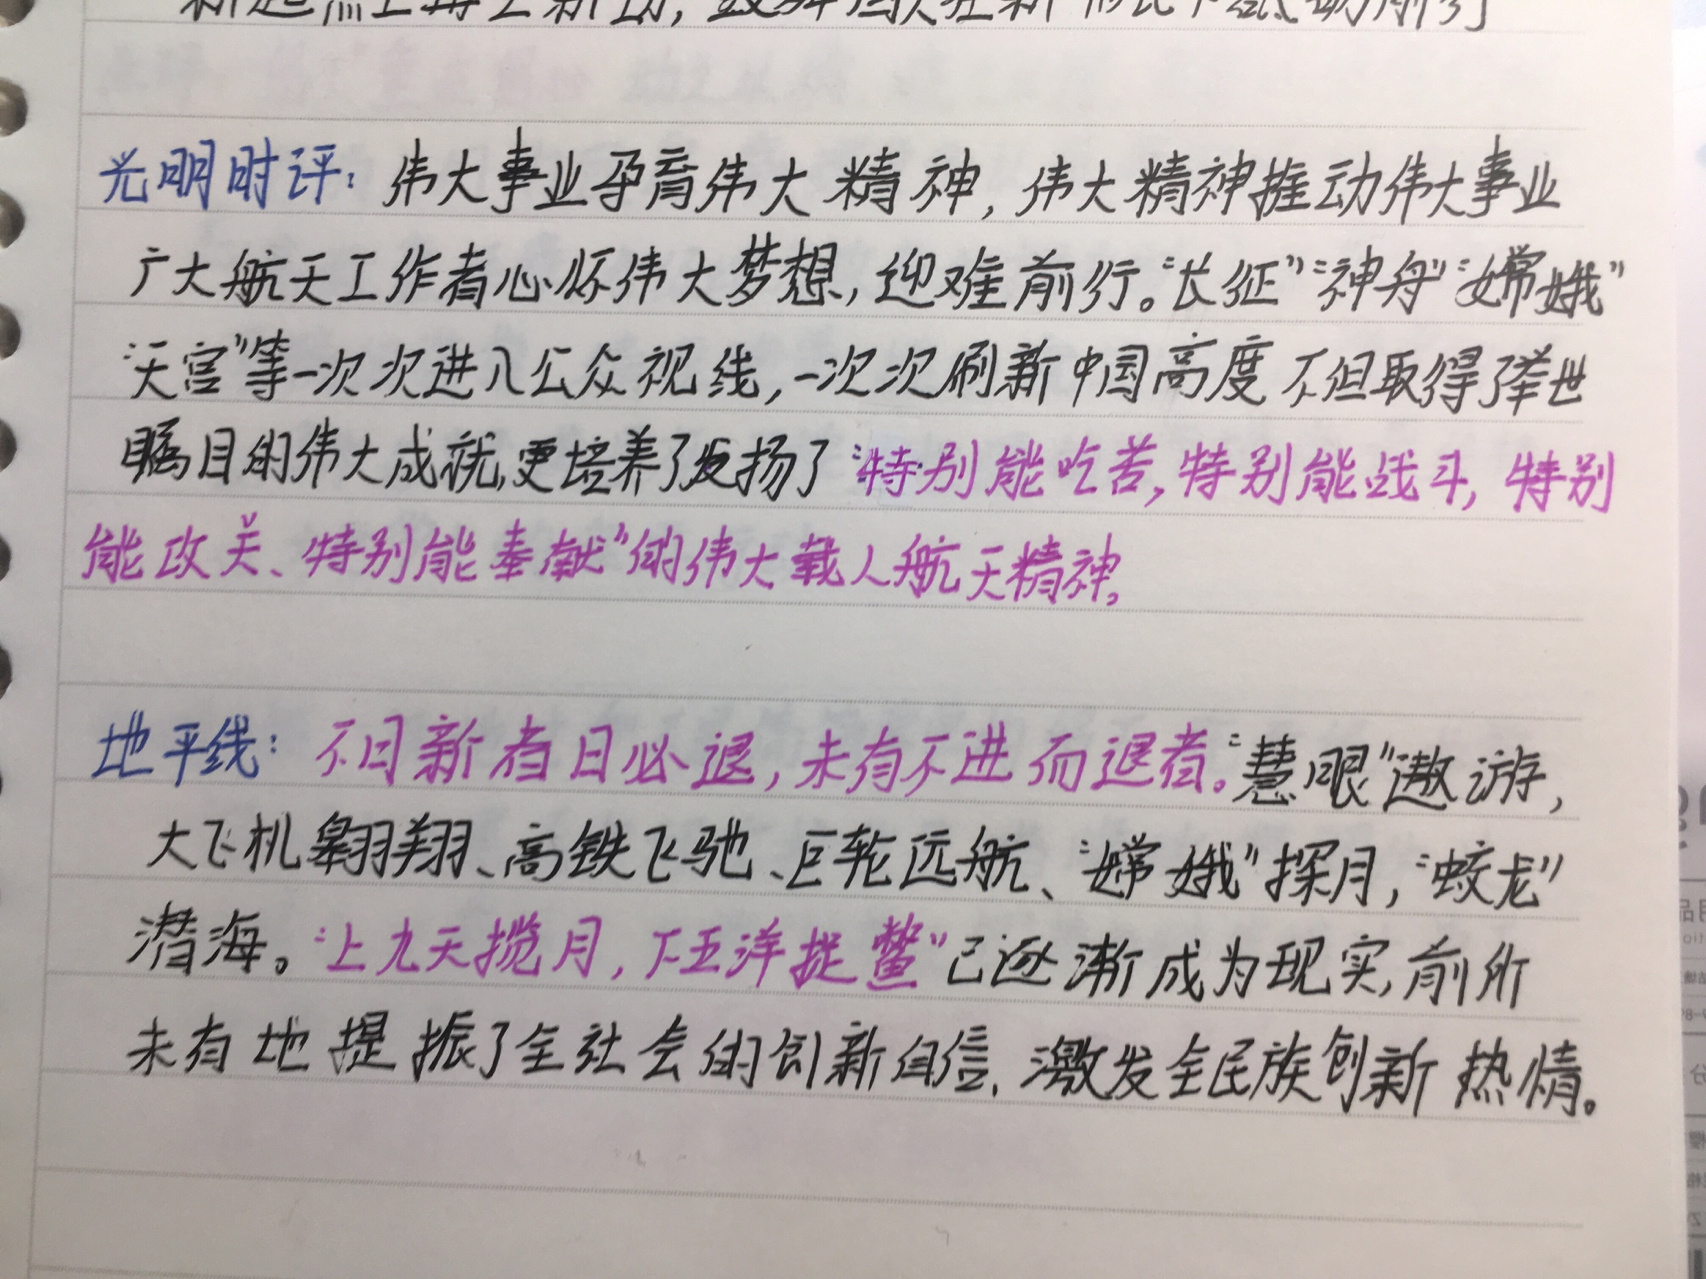 新起点上再立新功,
光明时评：伟大事业孕育伟大精神，伟大精神推动伟大事业
广大航天工作者心怀伟大梦想，迎难前行。“长征”“神舟”“嫦娥”
“天宫”等一次次进入公众视线，一次次刷新中国高度不但取得了举世
瞩目的伟大成就,更培养了发扬了“特别能吃苦，特别能战斗，特别
能攻关、特别能奉献”的伟大载人航天精神,
地平线：不日新者日必退，未有不进而退者。“慧眼”遨游，
大飞机翱翔、高铁飞驰、巨轮远航、“嫦娥”探月，“蛟龙”
潜海。“上九天揽月，下五洋捉鳖”已逐渐成为现实,前所
未有地提振了全社会的创新自信、激发全民族创新热情。